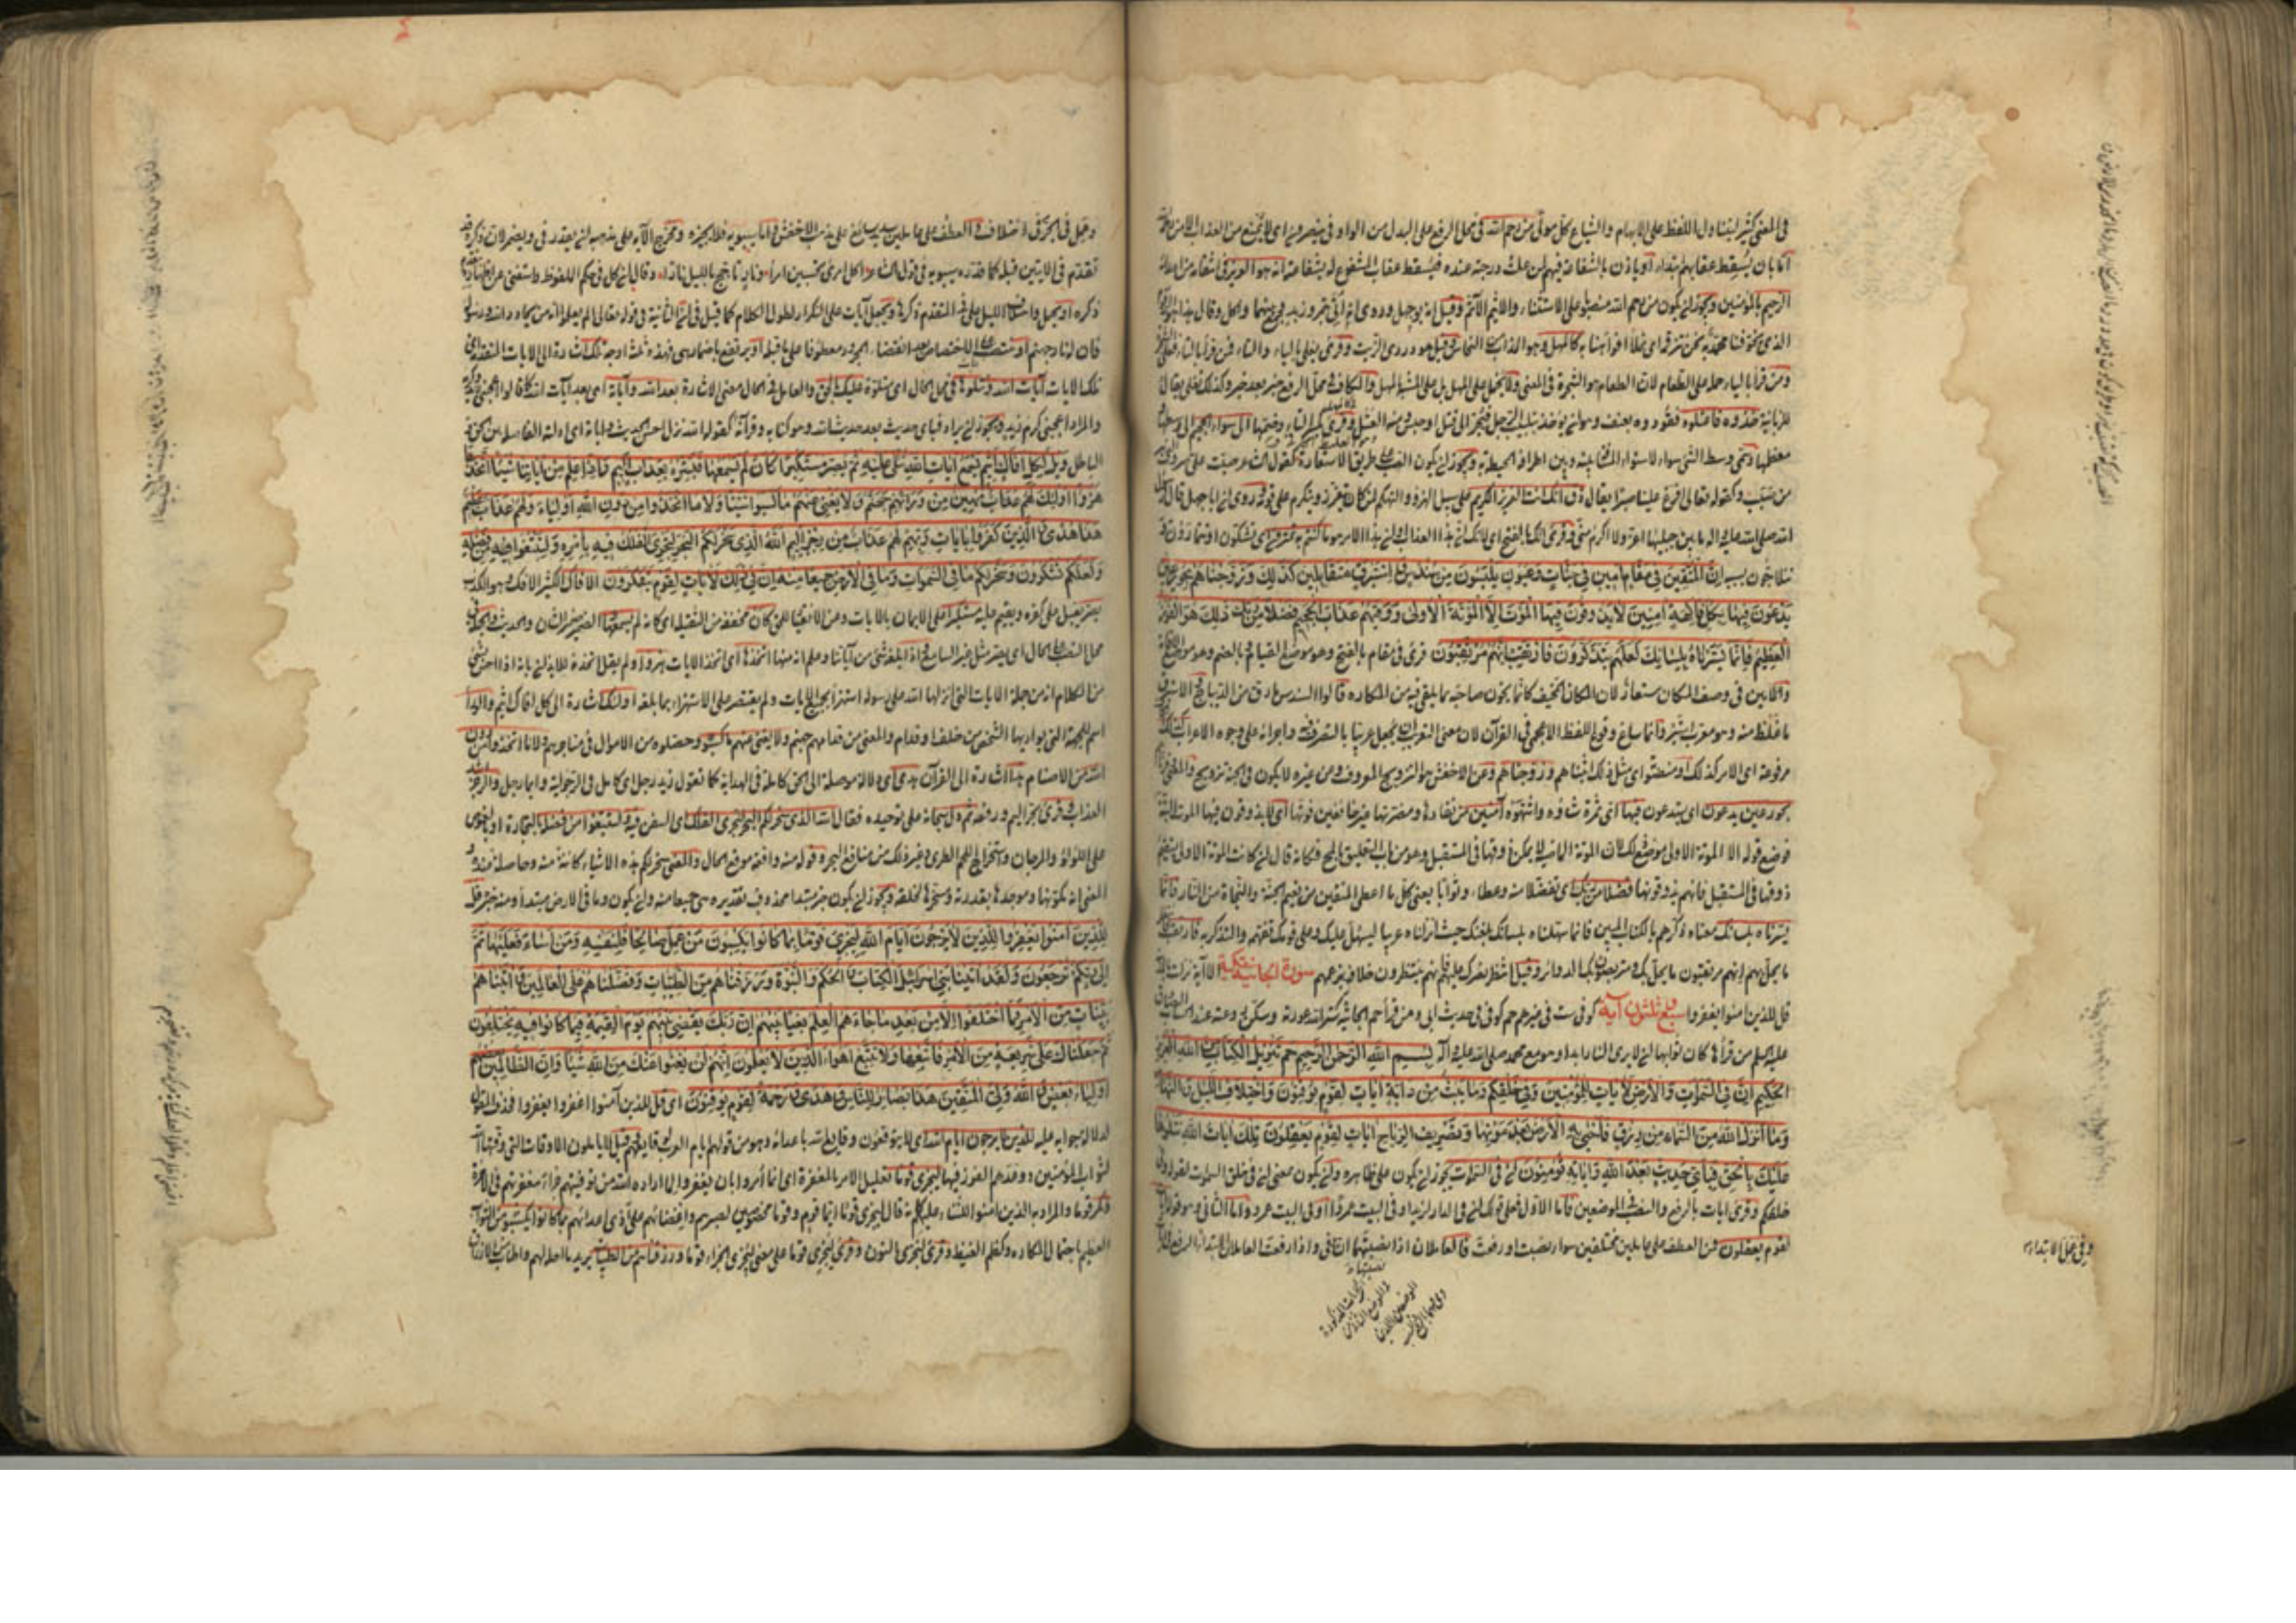 في المعنى كثير ليتناول اللفظ على الابهام والشياع كل مولى من رحم الله في محل الرفع على البدل من الواو في ينصرون اى لا يمنع من العذاب الا من رحمه
اما بان يسقط عقابهم ابتداء او ياذن بالشفاعة فيهم لمن علت درجته عنده فيسقط عقاب المشفوع له بشفاعته انه هو العزيز في انتقامه من اعدائه
الرحيم بالمؤمنين ويجوز ان يكون من رحم الله منصوبا على الاستثناء والاثيم الآثم وقيل انه ابو جهل وروى انه اتى بتمر وزبد فجمع بينهما واكل وقال هذا الزقوم
الذى يخوفنا محمد به نحن نتزقمه اى نملأ افواهنا به كالمهل وهو المذاب من النحاس وقيل هو دردى الزيت وقرئ يغلى بالياء والتاء فمن قرأ بالتاء فعلى الشجرة
ومن قرأ بالياء حمله على الطعام لان الطعام هو الشجرة في المعنى ولا يحمل على المهل بل على المشبه بالمهل والكاف في محل الرفع خبر بعد خبر وكذلك تغلى يقال
للزبانية خذوه فاعتلوه فقودوه بعنف وهو ان يؤخذ بتلبيب الرجل فيجر الى قتل او حبس ومنه العتل وقرئ بكسر التاء وضمها الى سواء الجحيم الى وسطها
معظمها وسمى وسط الشئ سواء لاستواء المسافة بينه وبين اطرافه المحيطة به ويجوز ان يكون الصب على طريق الاستعارة كقول الشاعر صبت عليه صروف
من صبب وكقوله تعالى افرغ علينا صبرا يقال ذق انك انت العزيز الكريم على سبيل الهزء والتهكم لمن كان يتعزز ويتكرم على قومه وروى ان ابا جهل قال
الله صلى الله عليه وآله ما بين جبليها اعز ولا اكرم منى وقرئ انك بالفتح اى لانك ان هذا العذاب او ان هذا الامر هو ما كنتم به تمترون اى تشكون او تتمارون
تتلاجون بسببه ان المتقين في مقام امين في جنات وعيون يلبسون من سندس واستبرق متقابلين كذلك وزوجناهم بحور عين
يدعون فيها بكل فاكهة امنين لا يذوقون فيها الموت الا الموتة الاولى ووقيهم عذاب الجحيم فضلا من ربك ذلك هو الفوز
العظيم فانما يسرناه بلسانك لعلهم يتذكرون فارتقب انهم مرتقبون قرئ في مقام بالفتح وهو موضع القيام وبالضم وهو موضع
والامين في وصف المكان مستعار لان المكان المخيف كانما يخون صاحبه بما يلقى فيه من المكاره قالوا السندس ما رق من الديباج والاستبرق
ما غلظ منه وهو معرب استبر وانما ساغ وقوع اللفظ الاعجمى في القرآن لان معنى التعريب ان يجعل عربيا بالتصرف فيه واجرائه على وجوه الاعراب كذلك
مرفوعة اى الامر كذلك او منصوبة اى مثل ذلك اثبناهم وزوجناهم وعن الاخفش هو التزويج المعروف وعن غيره لا يكون في الجنة تزويج والمعنى قرناهم
بحور عين يدعون اى يستدعون فيها اى ثمرة شاؤه واشتهوه آمنين من نفادها ومضرتها غير خائفين فوتها اى لا يذوقون فيها الموت البتة
فوضع قوله الا الموتة الاولى موضع ذلك لان الموتة الماضية لا يمكن ذوقها في المستقبل وهو من باب التعليق بالمحال فكانه قال ان كانت الموتة الاولى يستقيم
ذوقها في المستقبل فانهم يذوقونها فضلا من ربك اى تفضلا منه وعطاء وثوابا يعنى كل ما اعطى المتقين من نعيم الجنة والنجاة من النار فانما
يسرناه بلسانك معناه ذكرهم بالكتاب المبين فانما سهلناه بلسانك بلغتك حيث انزلناه عربيا ليسهل عليك وعلى قومك تفهمه والتذكر به فارتقب
ما يحل بهم انهم مرتقبون ما يحل بك ومتربصون بك الدوائر وقيل انتظر نصرك عليهم فانهم ينتظرون خلافه بزعمهم سورة الجاثية مكية الا آية نزلت
قل للذين امنوا يغفروا سبع ثلثون آية كوفى ست في غيرهم حم كوفى في حديث ابى ومن قرأ حم الجاثية ستر الله عورته وسكن روعته عند الحساب
عليه السلم من قرأها كان ثوابها ان لا يرى النار ابدا وهو مع محمد صلى الله عليه وآله بسم الله الرحمن الرحيم حم تنزيل الكتاب من الله العزيز
الحكيم ان في السموات والارض لايات للمؤمنين وفى خلقكم وما يبث من دابة ايات لقوم يوقنون واختلاف الليل والنهار
وما انزل الله من السماء من رزق فاحيى به الارض بعد موتها وتصريف الرياح ايات لقوم يعقلون تلك ايات الله نتلوها
عليك بالحق فباى حديث بعد الله واياته يؤمنون ان في السموات يجوز ان يكون على ظاهره وان يكون معنى ان في خلق السموات لقوله وفى
خلقكم وقرئ ايات بالرفع والنصب في الموضعين فاما الاول فعلى قولك ان في الدار لزيدا وفى البيت عمروا او وفى البيت عمرو واما الثانى وهو قوله ايات
لقوم يعقلون فمن العطف على عاملين مختلفين سواء نصبت او رفعت فالعاملان اذا نصبتهما ان وفى واذا رفعت العاملان الابتداء وفى
وفى عمل الابتداء
وجل في الجر في اختلاف والعطف على عاملين سديد سائغ على مذهب الاخفش واما سيبويه فلا يجيزه ومخرج الآية على مذهبه ان يقدر في ويضمر لان ذكره قد
تقدم في الايتين قبله كما قدره سيبويه في قول الشاعر اكل امرئ تحسبين امرأ ونار تأجج بالليل نارا وقال ان كل في حكم الملفوظ واستغنى عن اظهاره
ذكره او يحمل واختلاف الليل على في المتقدم ذكرها ويجعل آيات على التكرار لطول الكلام كما قيل في ان الثانية في قوله تعالى الم يعلموا انه من يحادد الله ورسوله
فان له نار جهنم او ينتصب على الاختصاص بعد انقضاء المجرور معطوفا على ما قبله او يرتفع باضمار هى فهذه ثلث اوجه تلك اشارة الى الايات المتقدمة اى
تلك الايات آيات الله ونتلوها في محل الحال اى متلوة عليك بالحق والعامل في الحال معنى الاشارة بعد الله وآياته اى بعد آيات الله كما قالوا اعجبنى زيد وكرمه
والمراد اعجبنى كرم زيد ويجوز ان يراد فباى حديث بعد حديث الله وهو كتابه وقرآنه كقوله الله نزل احسن الحديث وآياته اى ادلته الفاصلة بين الحق و
الباطل ويل لكل افاك اثيم يسمع ايات الله تتلى عليه ثم يصر مستكبرا كان لم يسمعها فبشره بعذاب اليم واذا علم من اياتنا شيئا اتخذها
هزوا اولئك لهم عذاب مهين من ورائهم جهنم ولا يغنى عنهم ما كسبوا شيئا ولا ما اتخذوا من دون الله اولياء ولهم عذاب عظيم
هذا هدى والذين كفروا بايات ربهم لهم عذاب من رجز اليم الله الذى سخر لكم البحر لتجرى الفلك فيه بامره ولتبتغوا من فضله
ولعلكم تشكرون وسخر لكم ما في السموات وما في الارض جميعا منه ان في ذلك لايات لقوم يتفكرون الافاك الكثير الافك وهو الكذب
يصر يقبل على كفره ويقيم عليه مستكبرا على الايمان بالايات وعن الانقياد للحق كان مخففة من الثقيلة اى كانه لم يسمعها والضمير ضمير الشان والحديث والجملة في
محل النصب على الحال اى يصر مثل غير السامع واذا بلغه شئ من آياتنا وعلم انه منها اتخذها اى اتخذ الايات هزوا ولم يقل اتخذه للايذان بانه اذا احس بشئ
من الكلام انه من جملة الايات التى انزلها الله على رسوله استهزأ بجميع الايات ولم يقتصر على الاستهزاء بما بلغه اولئك اشارة الى كل افاك اثيم والوراء
اسم للجهة التى يواريها الشخص من خلف او قدام والمعنى من قدامهم جهنم ولا يغنى عنهم ما كسبوه وحصلوه من الاموال في متاجرهم ولا ما اتخذوا من دون
الله من الاصنام هذا اشارة الى القرآن هدى اى دلالة موصلة الى الحق كاملة في الهداية كما تقول زيد رجل اى كامل في الرجولية وايما رجل والرجز
العذاب وقرئ بجر اليم ورفعه ثم دل سبحانه على توحيده فقال الله الذى سخر لكم البحر لتجرى الفلك اى السفن فيه ولتبتغوا من فضله بالتجارة او بالغوص
على اللؤلؤ والمرجان واستخراج اللحم الطرى وغير ذلك من منافع البحر وقوله منه واقعة موقع الحال والمعنى سخر لكم هذه الاشياء كائنة منه وحاصلة من عنده
المعنى انه مكونها وموجدها بقدرته وسخرها لخلقه ويجوز ان يكون خبر مبتدأ محذوف تقديره هى جميعا منه وان يكون وما في الارض مبتدأ ومنه خبره قل
للذين آمنوا يغفروا للذين لا يرجون ايام الله ليجزى قوما بما كانوا يكسبون من عمل صالحا فلنفسه ومن اساء فعليها ثم
الى ربكم ترجعون ولقد اتينا بنى اسرائيل الكتاب والحكم والنبوة ورزقناهم من الطيبات وفضلناهم على العالمين واتيناهم
بينات من الامر فما اختلفوا الا من بعد ما جاءهم العلم بغيا بينهم ان ربك يقضى بينهم يوم القيمة فيما كانوا فيه يختلفون
ثم جعلناك على شريعة من الامر فاتبعها ولا تتبع اهواء الذين لا يعلمون انهم لن يغنوا عنك من الله شيئا وان الظالمين بعضهم
اولياء بعض والله ولى المتقين هذا بصائر للناس وهدى ورحمة لقوم يوقنون اى قل للذين آمنوا اغفروا يغفروا فحذف المقول
لدلالة جوابه عليه للذين لا يرجون ايام الله اى لا يتوقعون وقايع الله باعدائه وهو من قولهم ايام العرب لوقايعهم وقيل لا ياملون الاوقات التى وقتها الله
لثواب المؤمنين ووعدهم الفوز فيها ليجزى قوما تعليل الامر بالمغفرة اى انما أمروا بان يغفروا لما اراده الله من توفيتهم جزاء مغفرتهم في الآخرة
ونكر قوما والمراد به الذين امنوا للثناء عليهم كانه قال ليجزى قوما ايما قوم وقوما مخصوصين لصبرهم واغضائهم على اذى اعدائهم بما كانوا يكسبون من الثواب
العظيم باحتمال المكاره وكظم الغيظ وقرئ لنجزى بالنون وقرئ ليجزى قوما على معنى ليجزى الجزاء قوما ورزقناهم من الطيبات يريد ما احل لهم واطاب من الارزاق